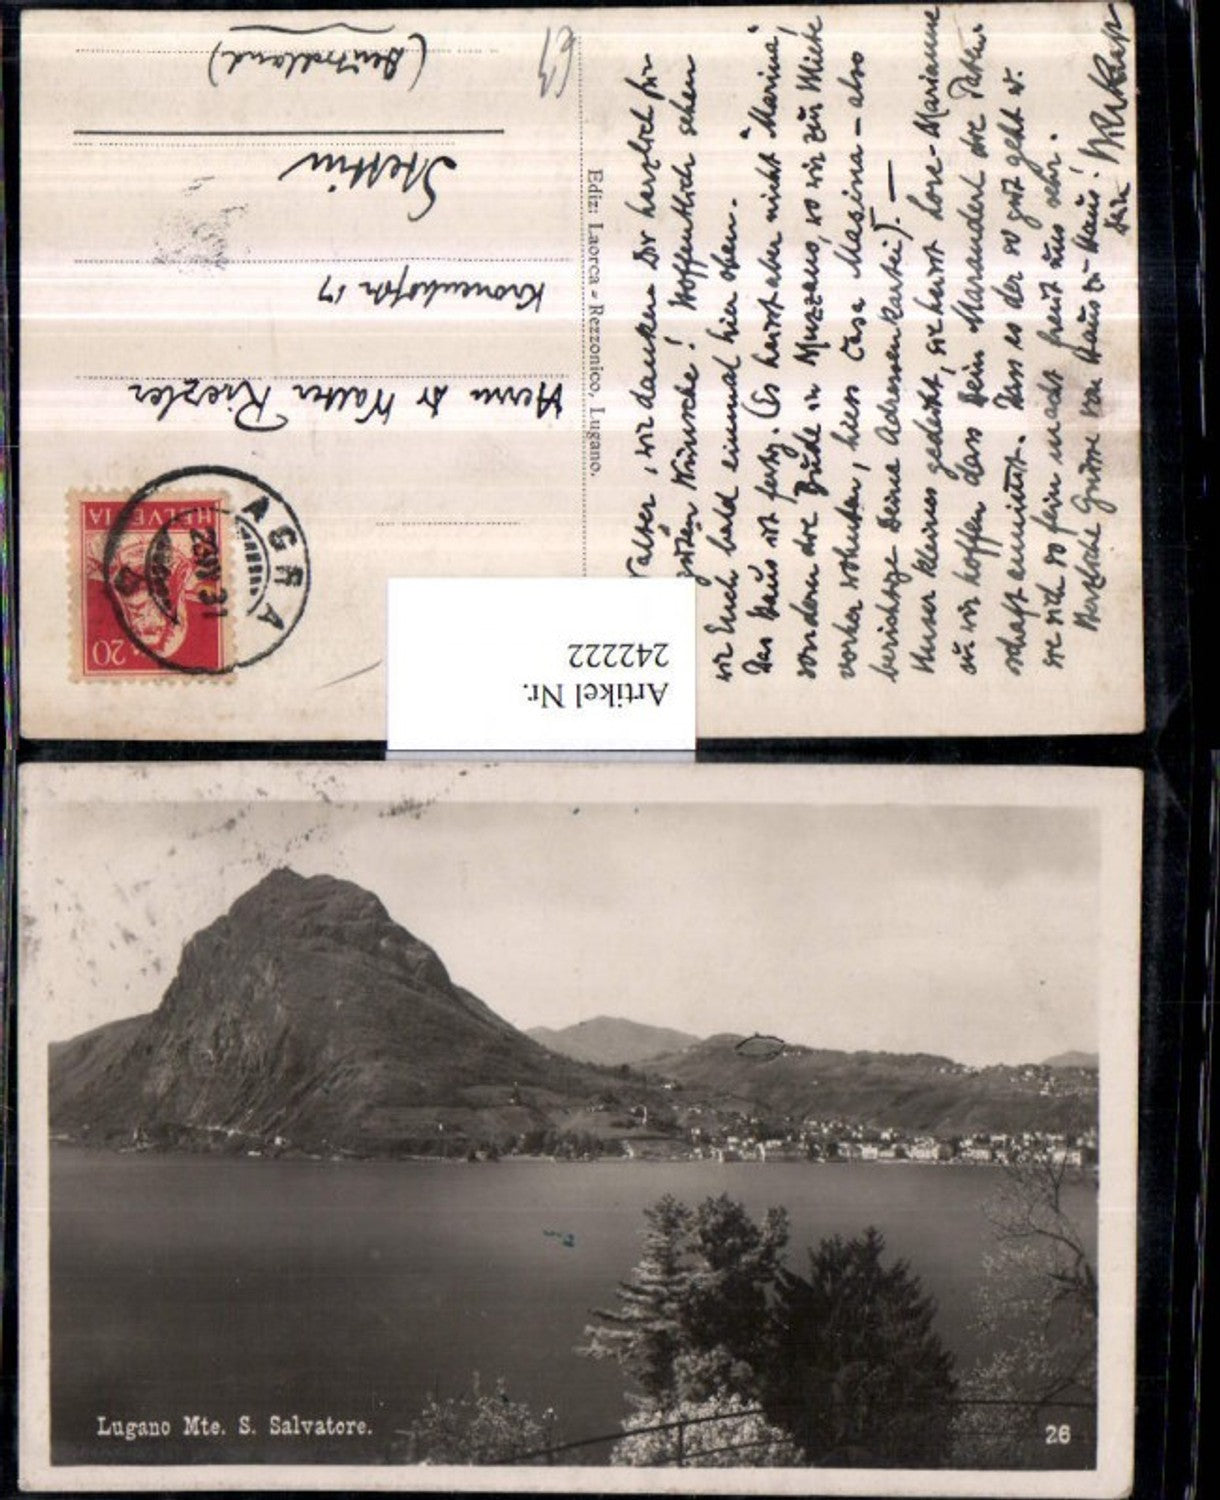 (Deutschland)
Stettin
Kronenhofstr 17
Herrn Dr Walter Riezler
Ediz: Laorca - Rezzonico, Lugano.
HELVETIA
20
AGRA
23. IV. 31
Artikel Nr.
242222
Walter, wir danken Dir herzlich für
guten Wünsche! Hoffentlich sehen
wir Euch bald einmal hier oben. -
Das Haus ist fertig. (Es heisst aber nicht "Marina",
sondern die Bude in Muzzano, wo wir zur Miete
vorher wohnten, hiess Casa Masina - also
berichtige Deine Adressenkartei). -
Unser kleines gedeiht, sie heisst Lore-Marianne
u wir hoffen dass Dein die Paten-
schaft annimmt. Dass es der so gut geht u.
sie sich so fein macht freut uns sehr.
Herzliche Grüsse von Haus zu Haus!
Dein
Lugano Mte. S. Salvatore.
26